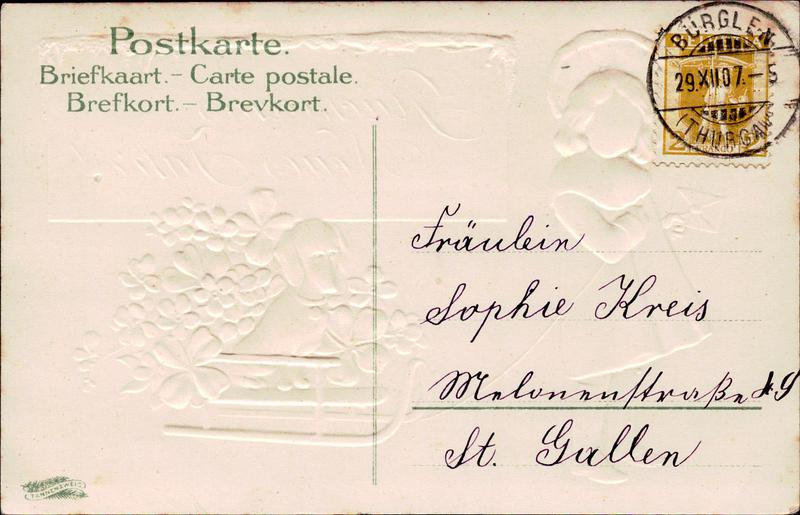 Postkarte.
Briefkaart.- Carte postale.
Brefkort.- Brevkort.
BÜRGLEN
29.XII.07.-
(THURGAU)
Fräulein
Sophie Kreis
Melonenstraße
St. Gallen
TANNENZWEIG